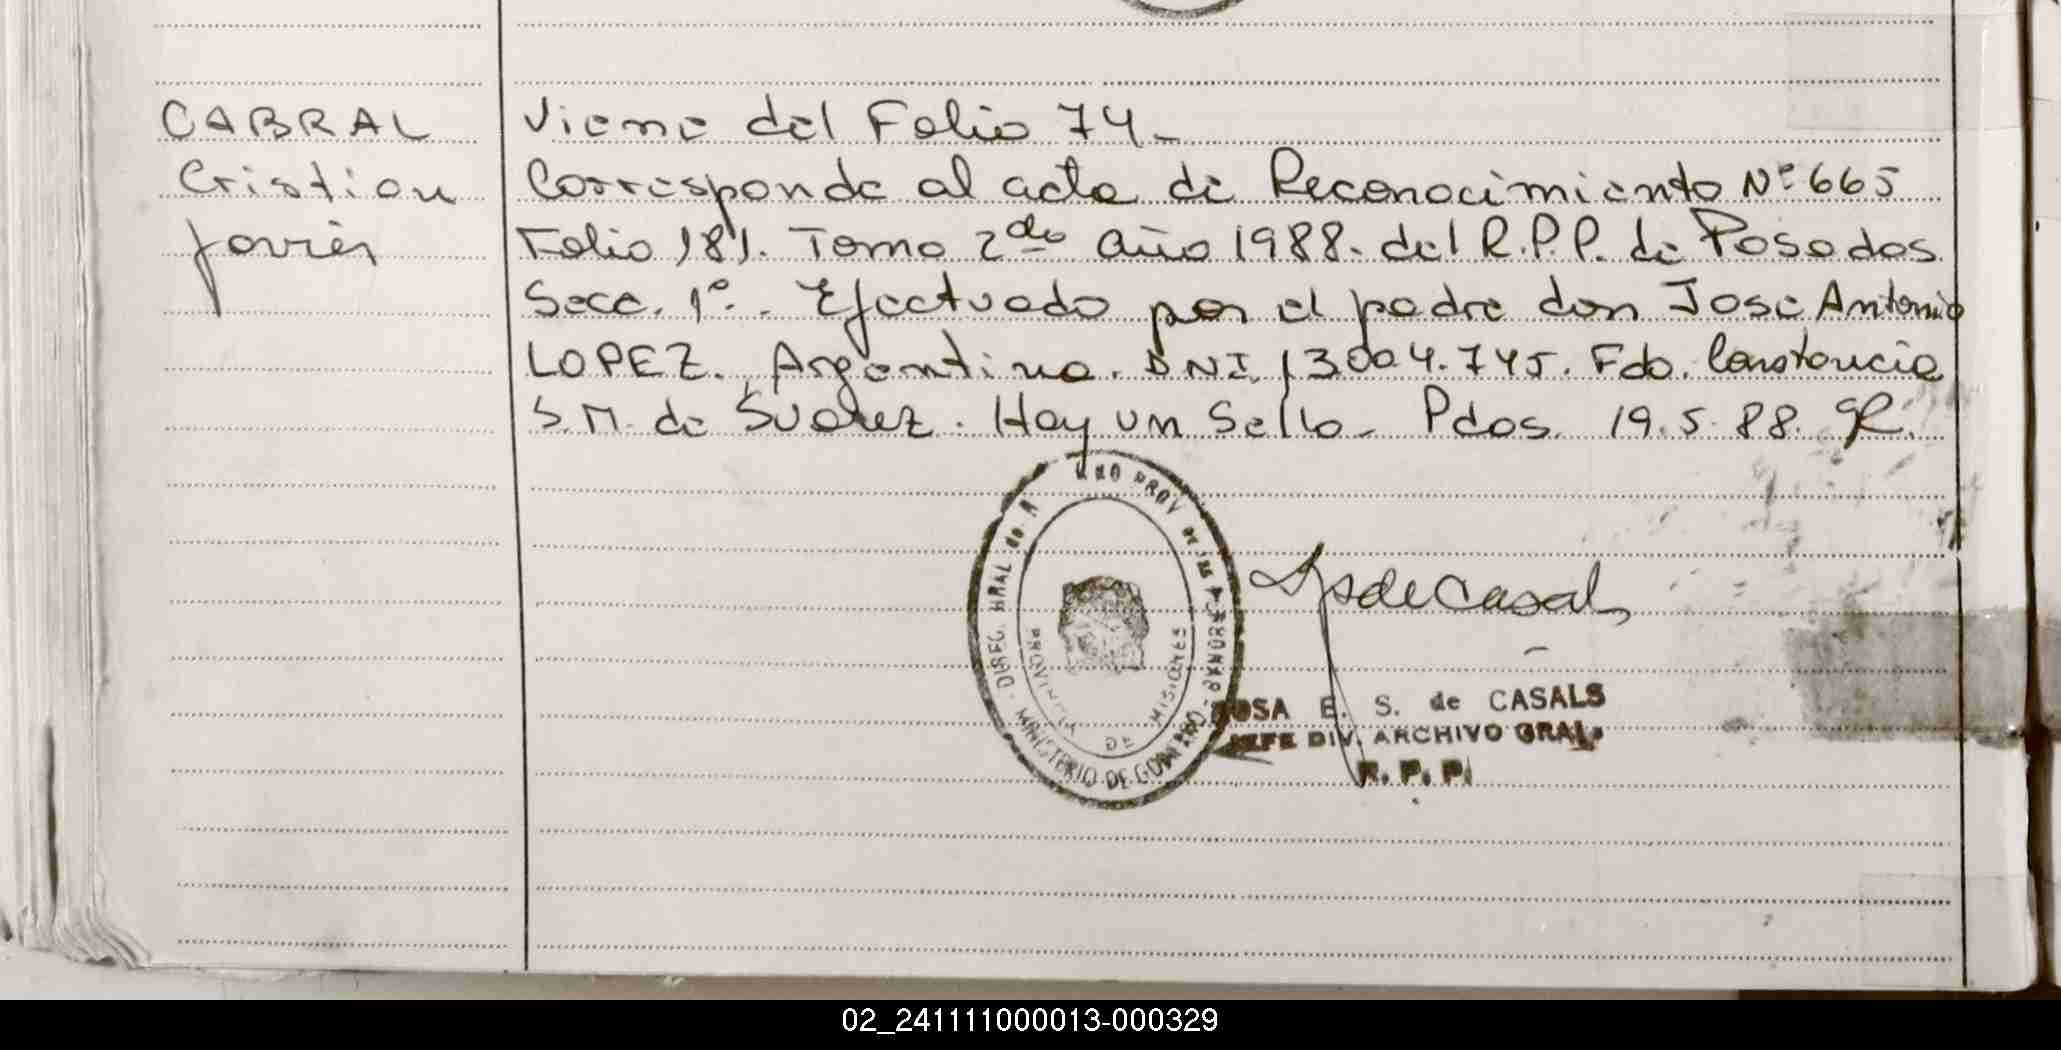 CABRAL
Cristian
Javier
Viene del Folio 74-
Corresponde al acta de Reconocimiento Nº 665
Folio 181. Tomo 2do año 1988. del R.P.P. de Posadas
Secc. 1º. Efectuado por el padre don Jose Antonio
LOPEZ. Argentino. DNI 13004.745. Fdo. Constancia
S.M. de Suarez. Hay un Sello- Pdas. 19.5.88.
PROV de las PERSONAS
DIREC. GRAL de
MINISTERIO DE GOBIERNO
PROVINCIA DE MISIONES
de Casals
ROSA E. S. de CASALS
JEFE DIV. ARCHIVO GRAL.
R. P. P.
02_241111000013-000329